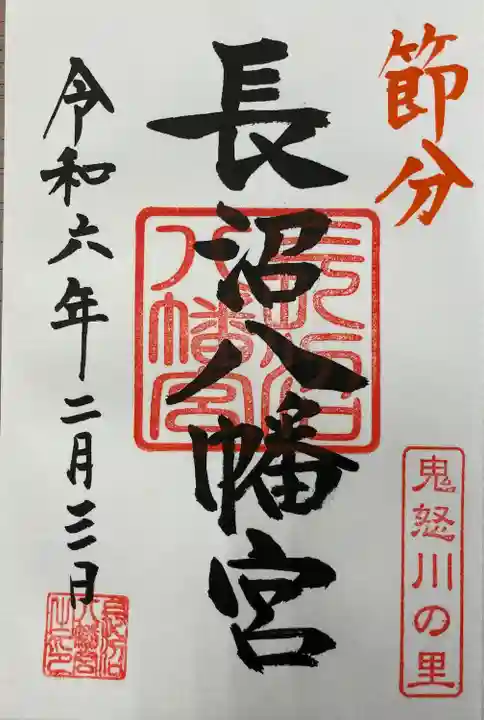 節分
鬼怒川の里
長沼八幡宮
長沼八幡宮
令和六年二月三日